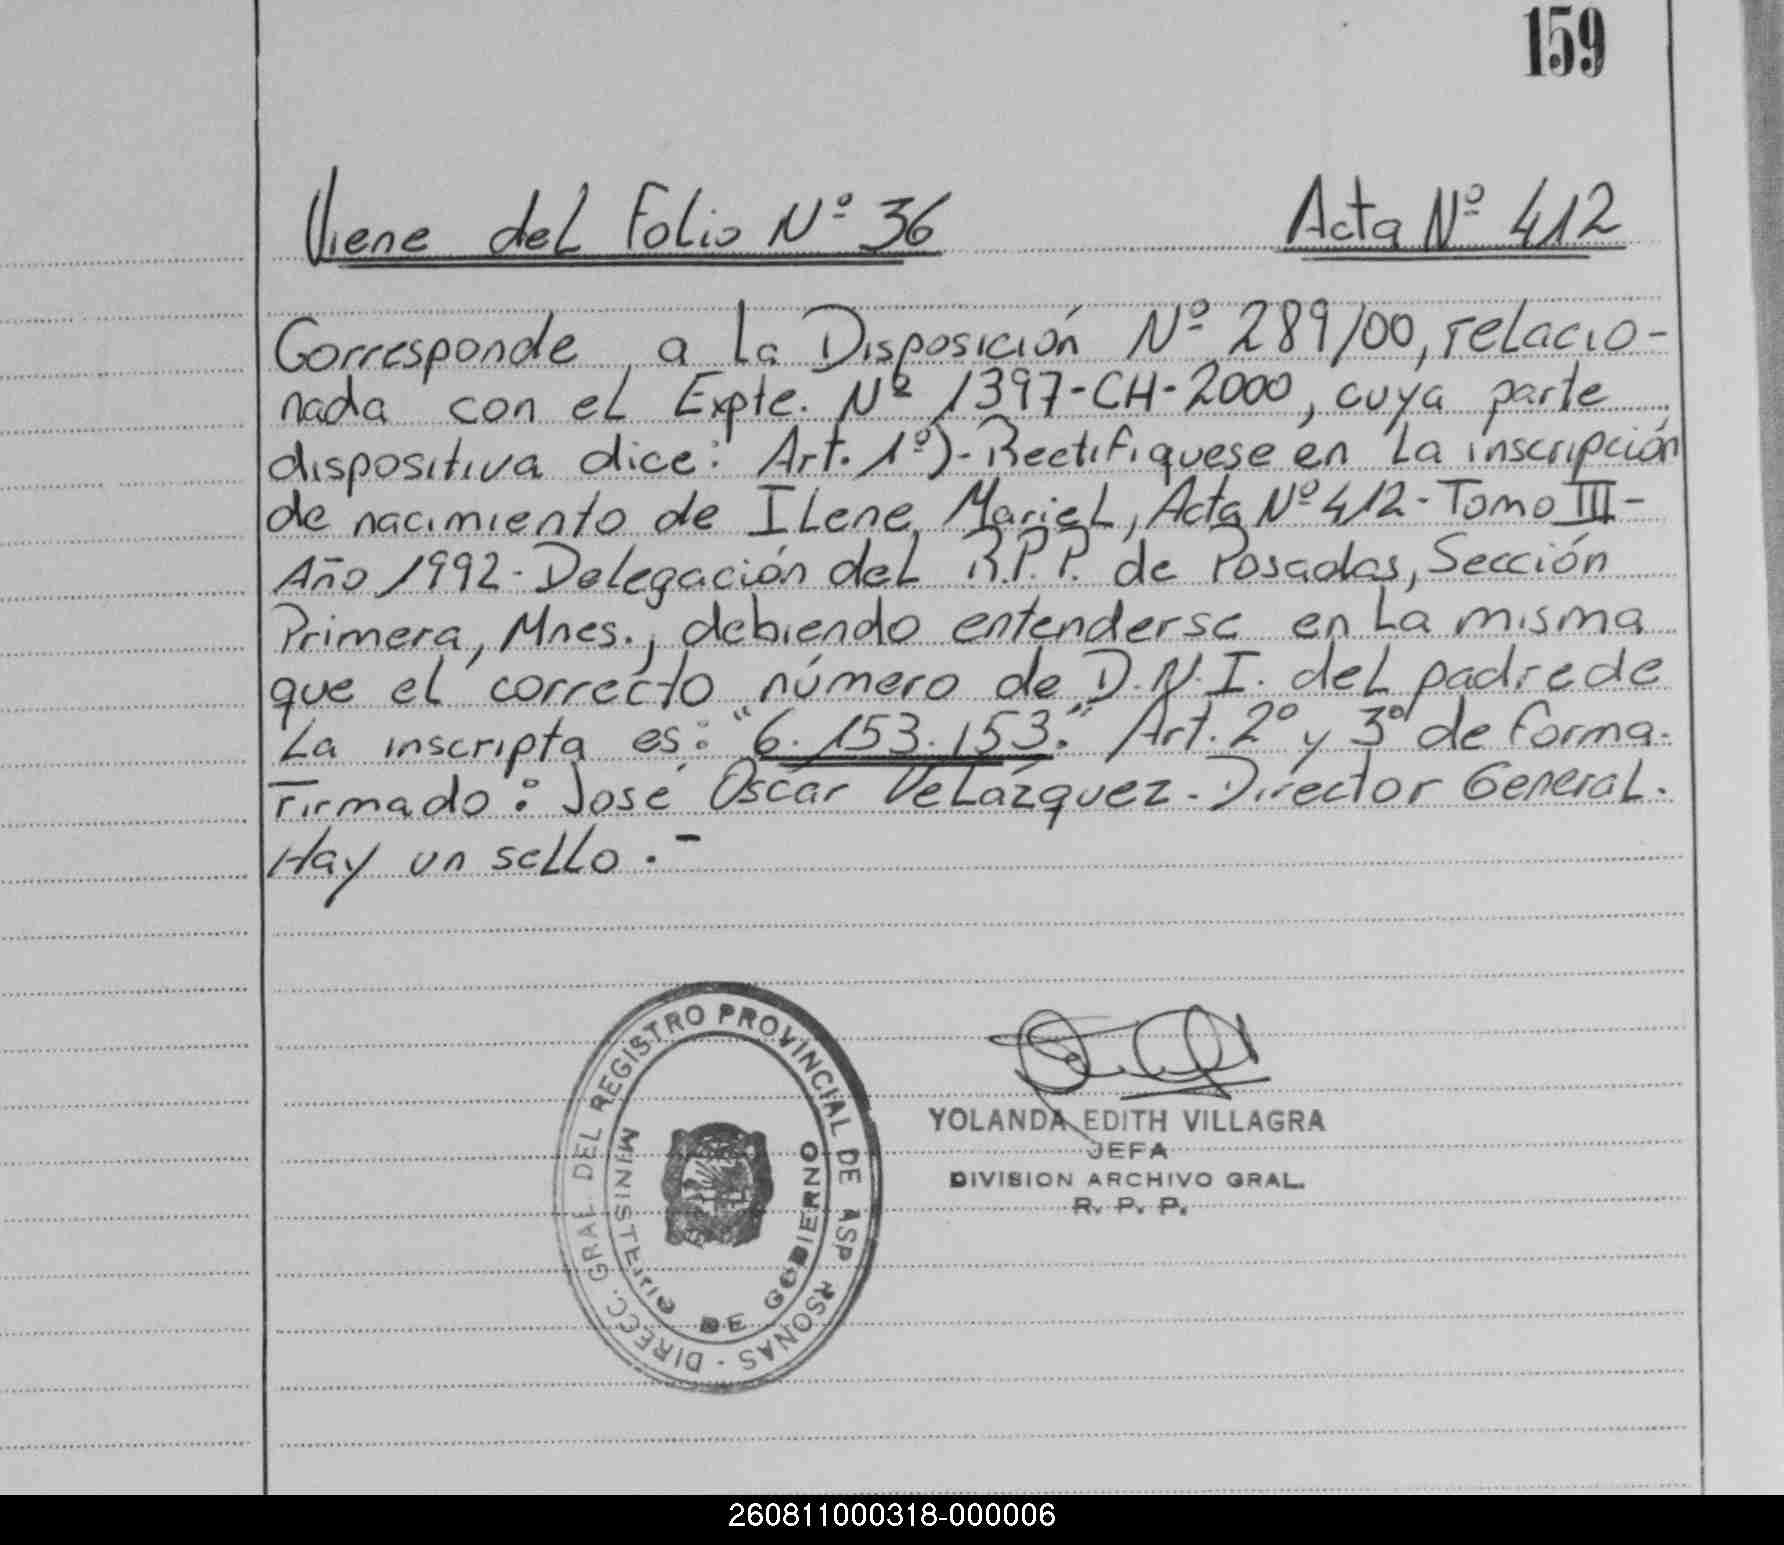 159
Viene del Folio Nº 36
Acta Nº 412
Corresponde a la Disposición Nº 289/00, relacio-
nada con el Expte. Nº 1397-CH-2000, cuya parte
dispositiva dice: Art. 1º)- Rectifiquese en la inscripción
de nacimiento de Ilene Mariel, Acta Nº 412 - Tomo III -
Año 1992 - Delegación del R.P.P. de Posadas, Sección
Primera, Mnes., debiendo entenderse en la misma
que el correcto número de D.N.I. del padre de
la inscripta es: "6.153.153." Art. 2º y 3º de forma.
Firmado: José Oscar Velázquez - Director General.
Hay un sello.-
DIRECC. GRAL. DEL REGISTRO PROVINCIAL DE ASP RSONAS -
MINISTERIO DE GOBIERNO
YOLANDA EDITH VILLAGRA
JEFA
DIVISION ARCHIVO GRAL.
R. P. P.
260811000318-000006